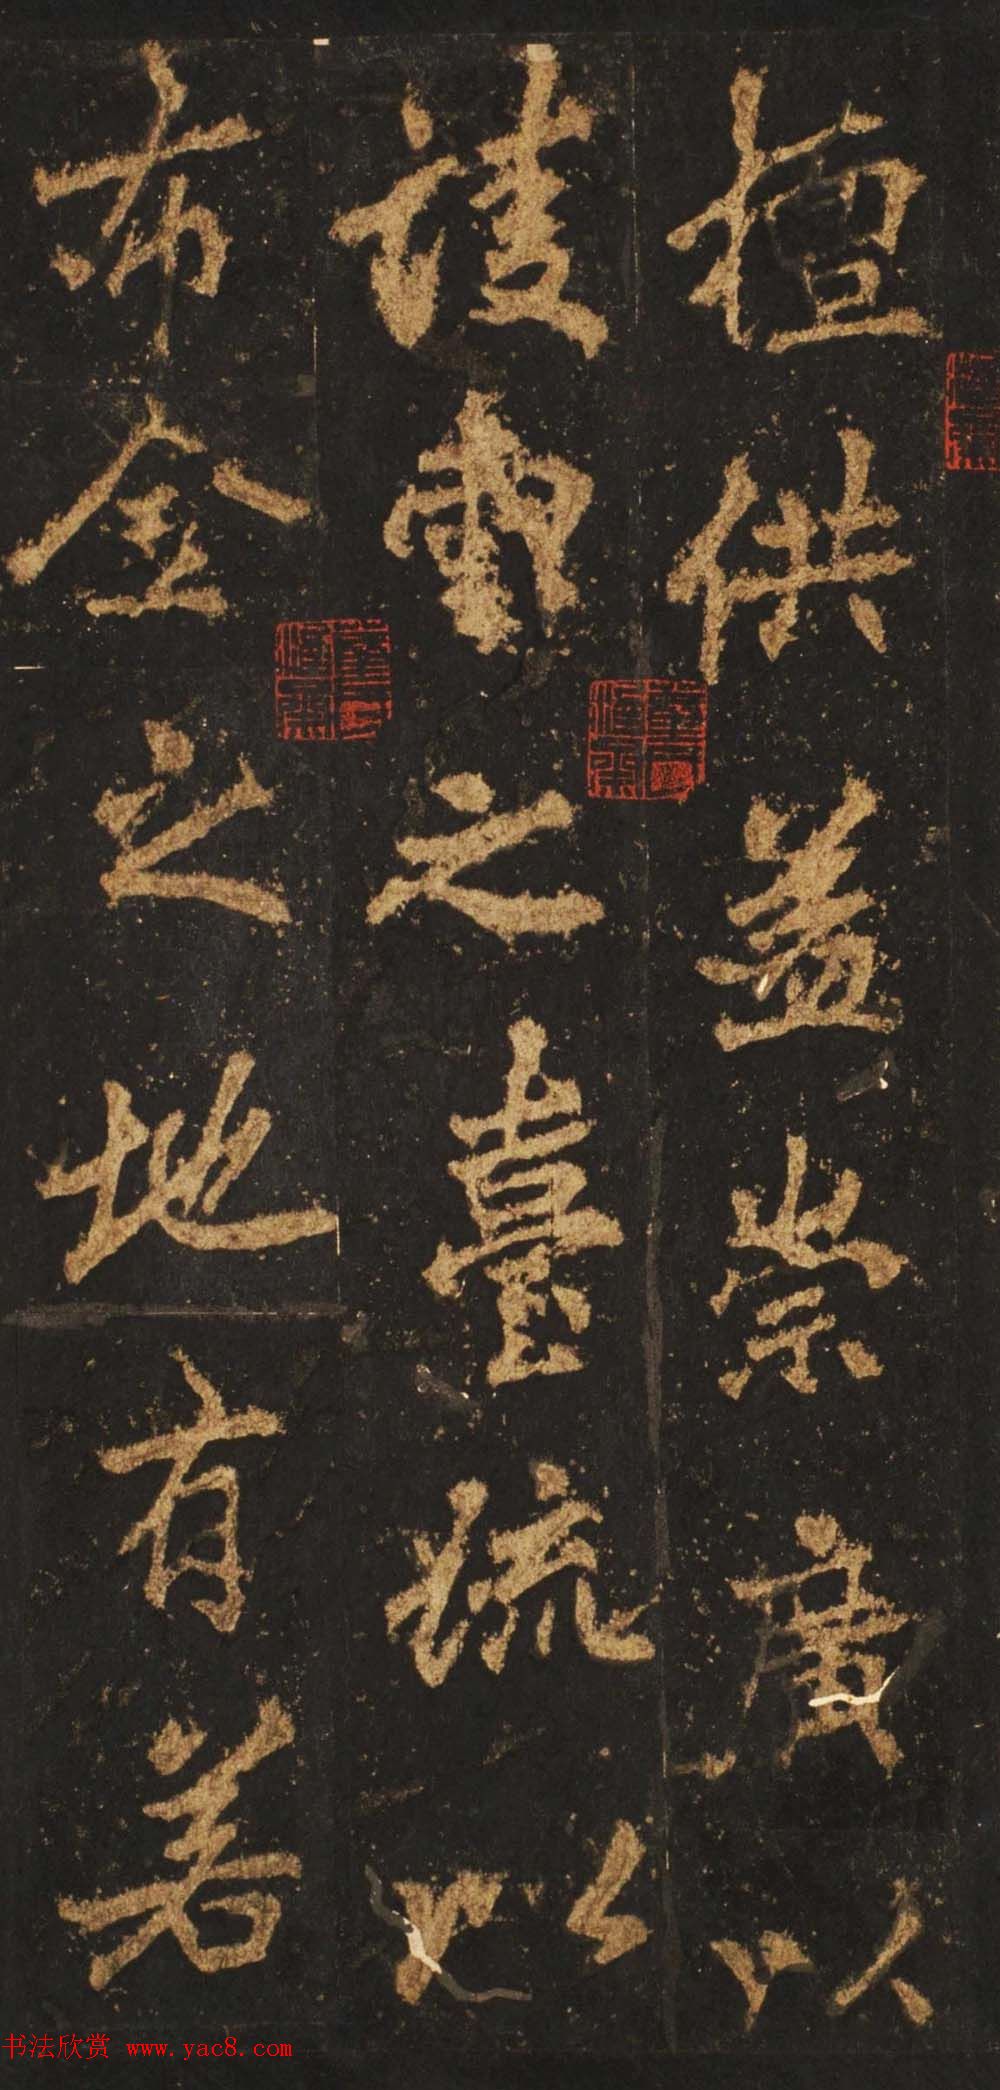 檀供益崇廣以
淩雲之臺疏以
布金之地有若
书法欣赏 www.yac8.com